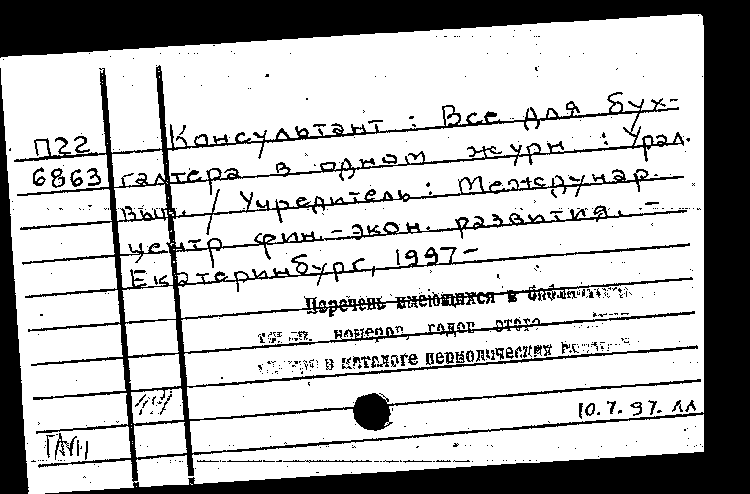 П22 Консультант : Все для бух-
6863 галтера в одном журн. : Урал.
вып. / Учредитель : Междунар.
центр фин.-экон. развития. -
Екатеринбург, 1997-
Перечень имеющихся в библиотеке
номеров, годов этого
в каталоге периодических
10.7.97. ЛЛ